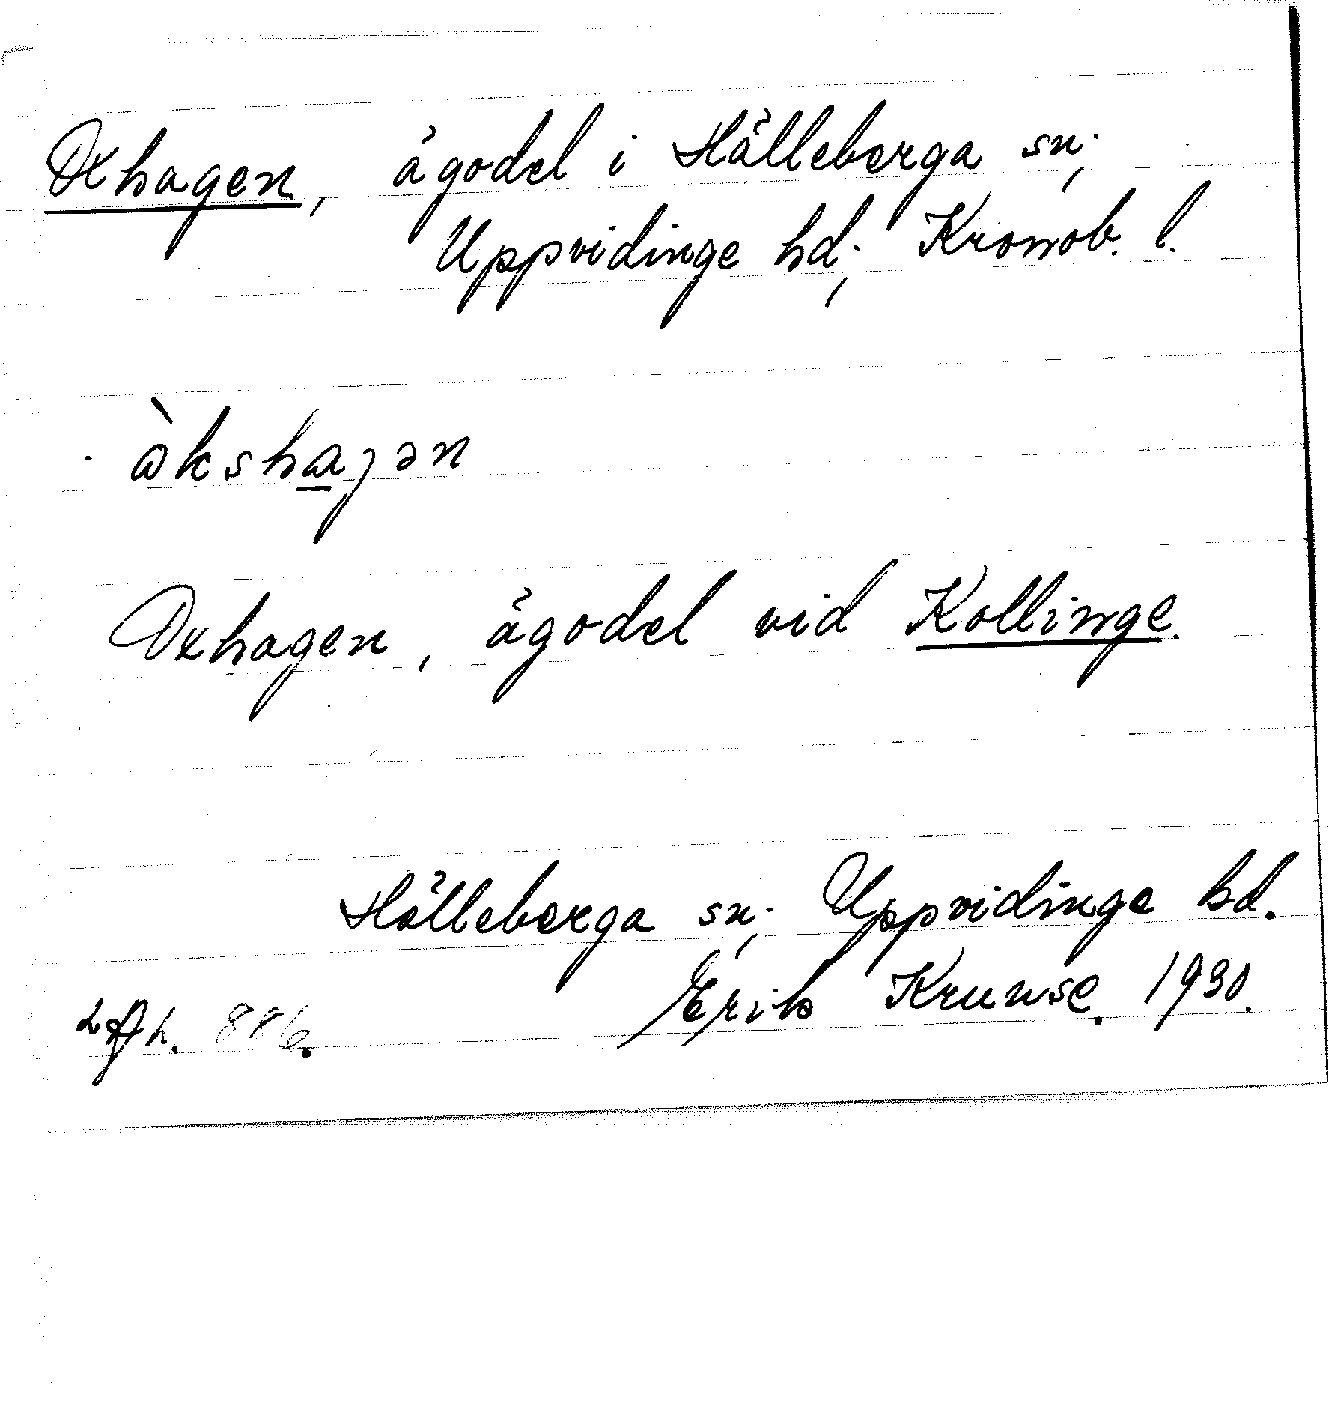 Oxhagen, ägodel i Hälleberga sn;
Uppvidinge hd; Kronob. l.
åkshaʒən
Oxhagen, ägodel vid Kollinge.
Hälleberga sn; Uppvidinge hd.
Erik Kruuse. 1930.
886.